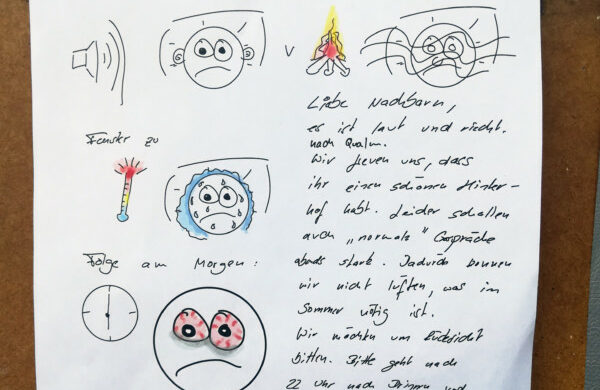 v
Fenster zu
Folge am Morgen:
Liebe Nachbarn,
es ist laut und riecht.
nach Qualm.
Wir freuen uns, dass
ihr einen schönen Hinter-
hof habt. Leider schallen
auch „normale" Gespräche
abends stark. Dadurch können
wir nicht lüften, was im
Sommer nötig ist.
Wir möchten um Rücksicht
bitten. Bitte geht nach
22 Uhr nach Drinnen und